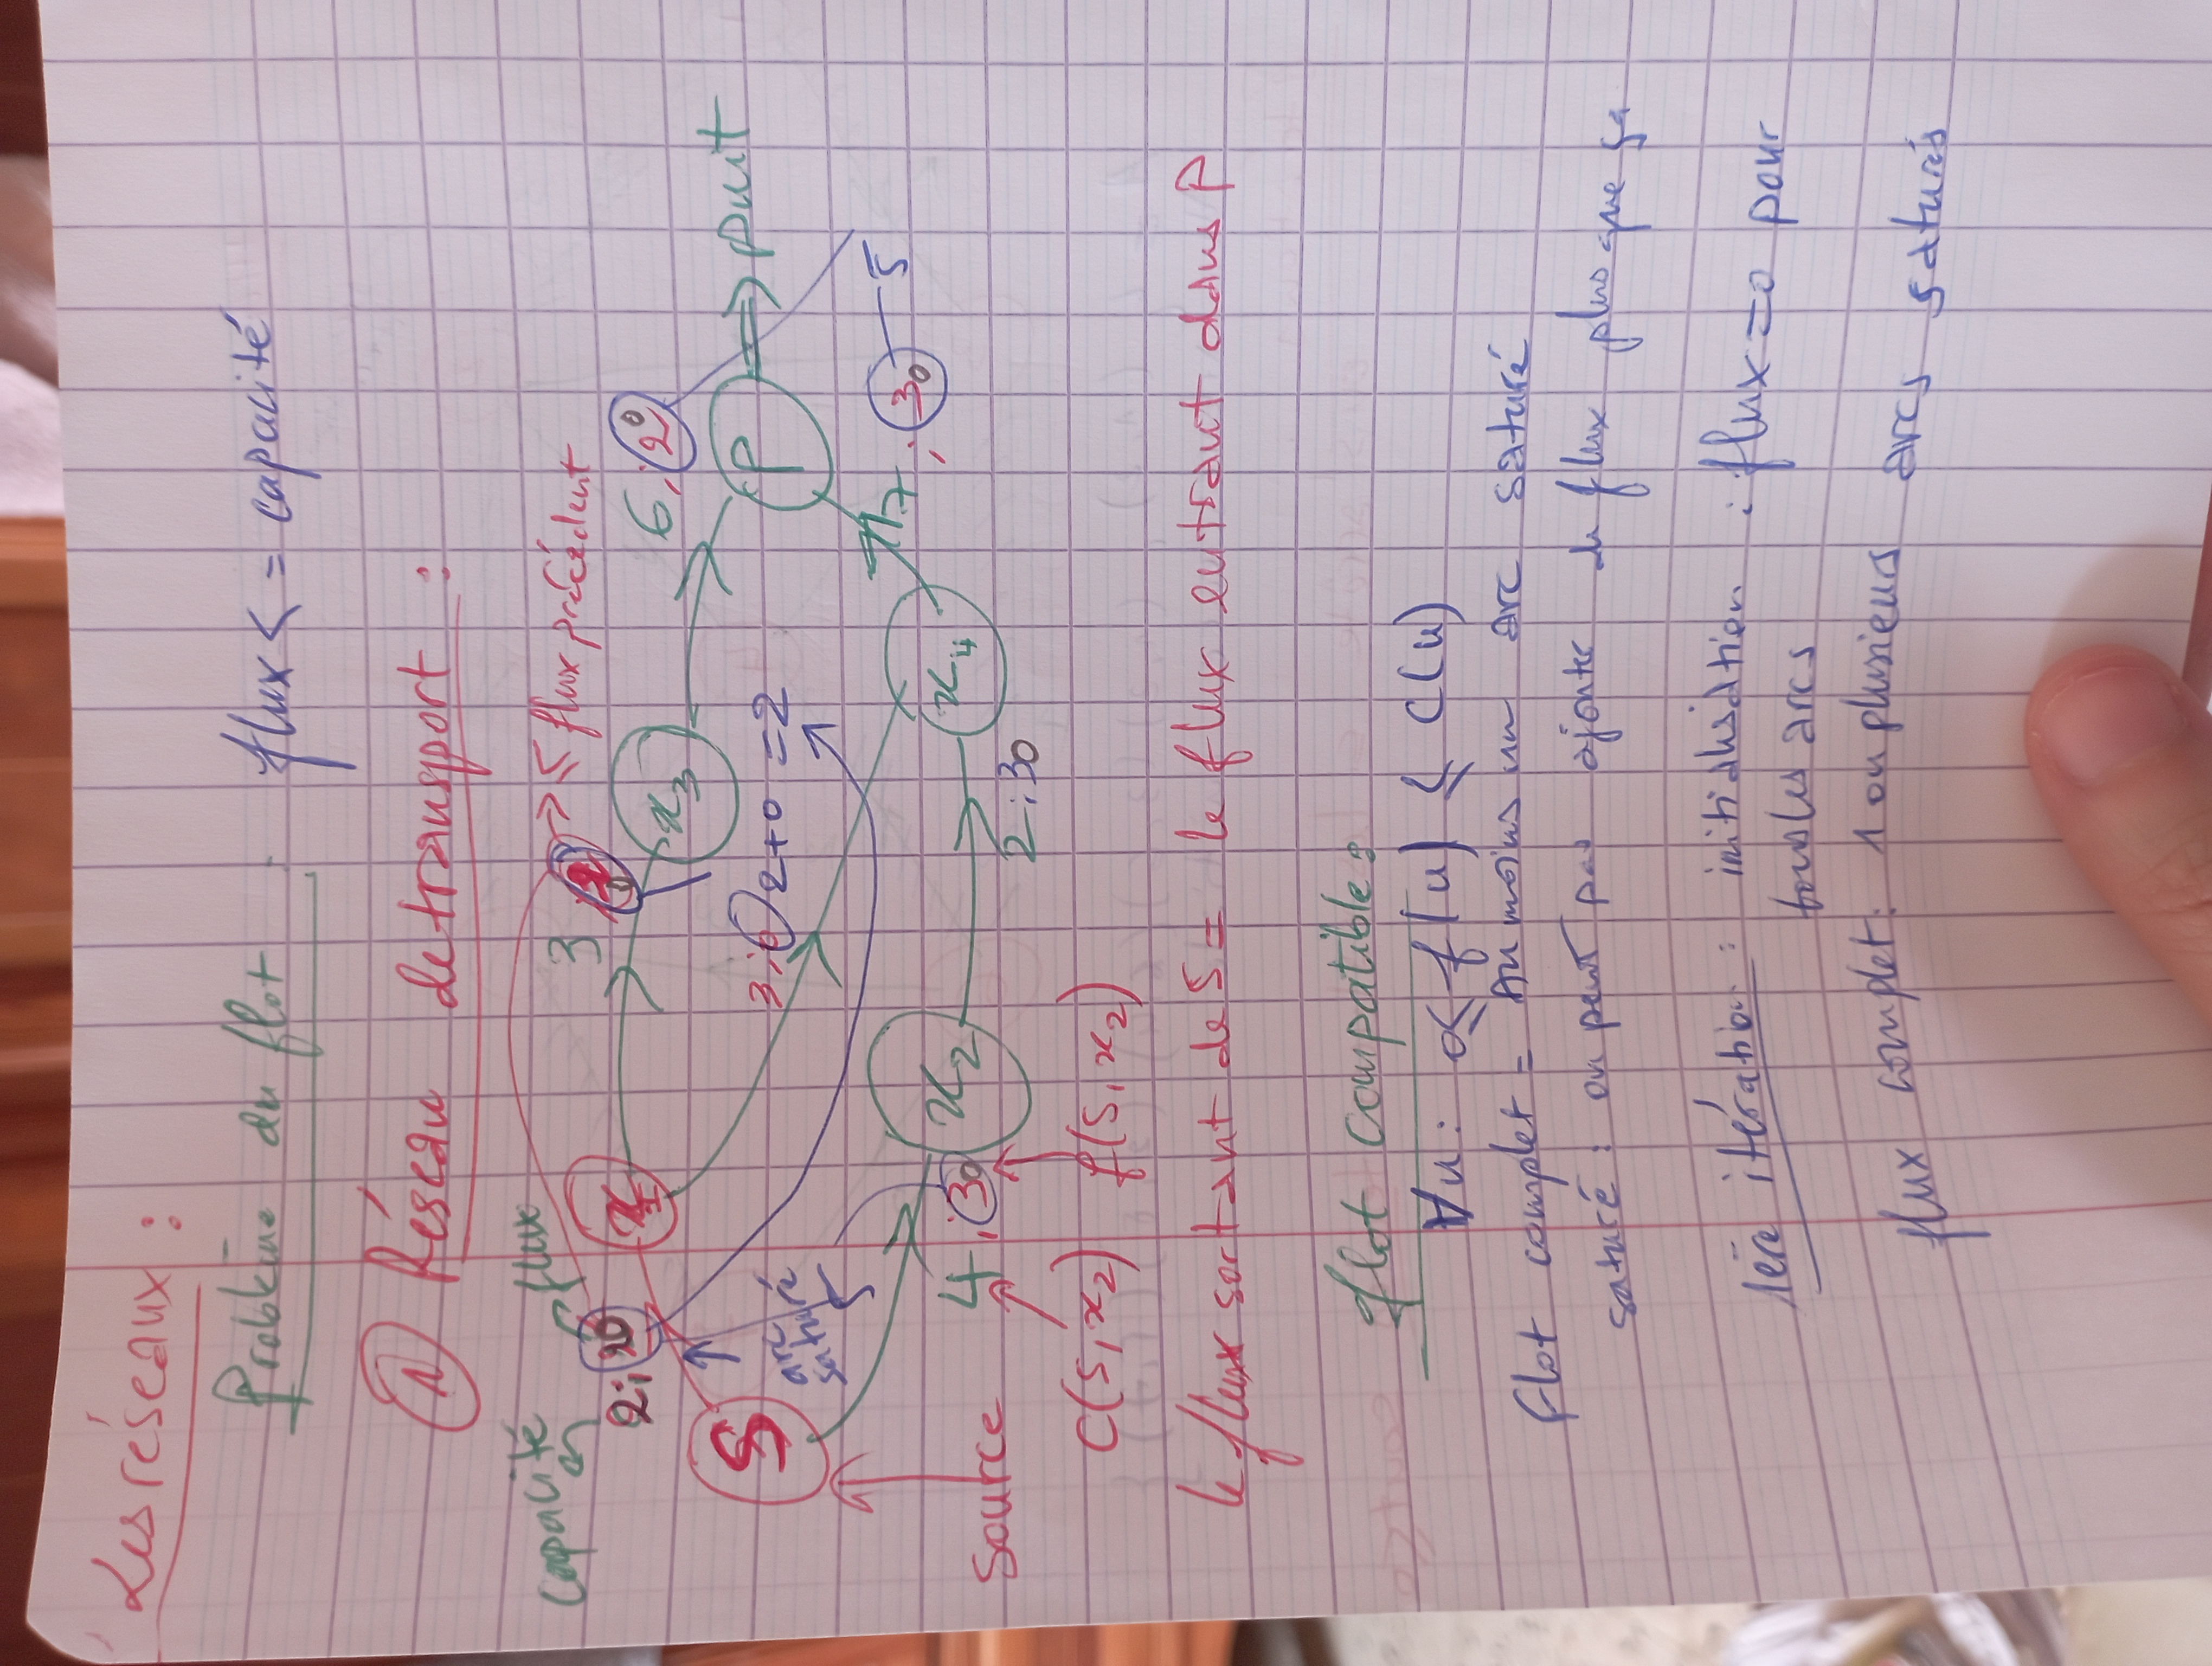 Les réseaux :
Problème du flot . flux < = capacité
① Réseau de transport :
capacité
flux
3
≤ flux précédent
2; 20
x1
x3
6; 20
S
arc
saturé
5
3; 0 2+0 = 2
P
puit
7; 30
5
source
4; 30
x2
x4
2; 30
C(S, x2) f(S, x2)
le flux sortant de S = le flux entrant dans P
flot compatible :
∀u : 0 ≤ f(u) ≤ C(u)
flot complet = Au moins un arc saturé
saturé : on peut pas ajouter de flux plus que ça
1ère itération : initialisation : flux = 0 pour
tous les arcs
flux complet : 1 ou plusieurs arcs saturés